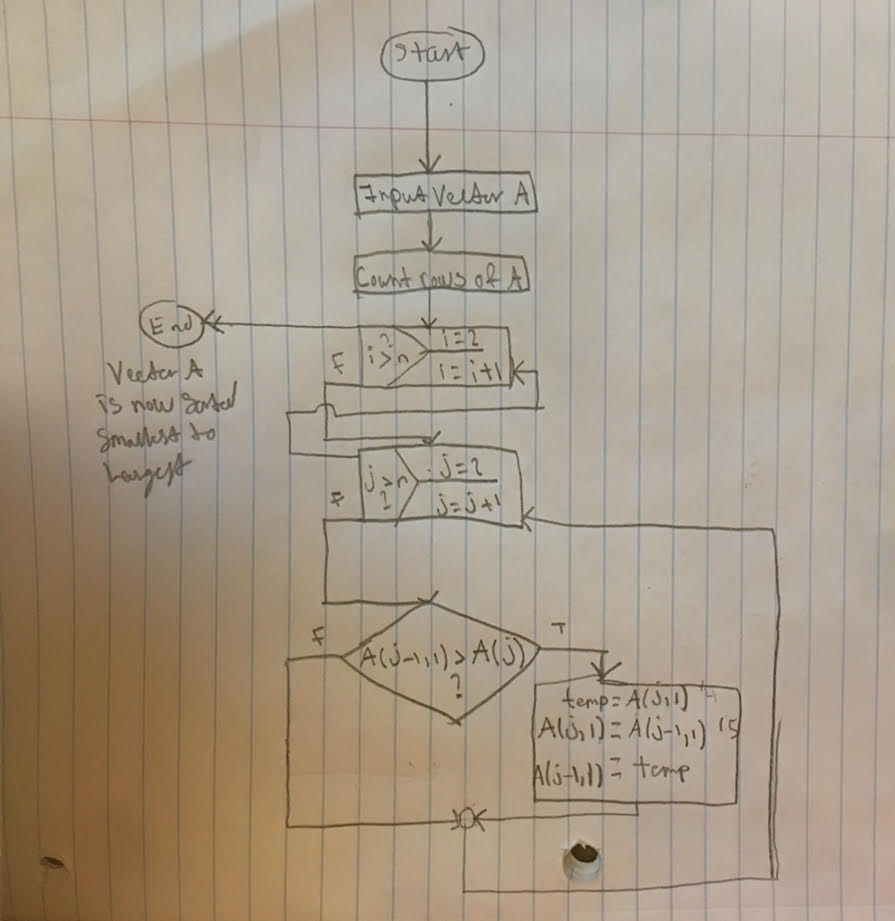 Start
Input Vector A
Count rows of A
End
Vector A
is now Sorted
Smallest to
Largest
F
?
i>n
i=2
i=i+1
F
j>n
?
j=2
j=j+1
F
A(j-1,1)>A(j)
?
T
temp=A(j,1)
A(j,1)=A(j-1,1)
A(j-1,1)=temp